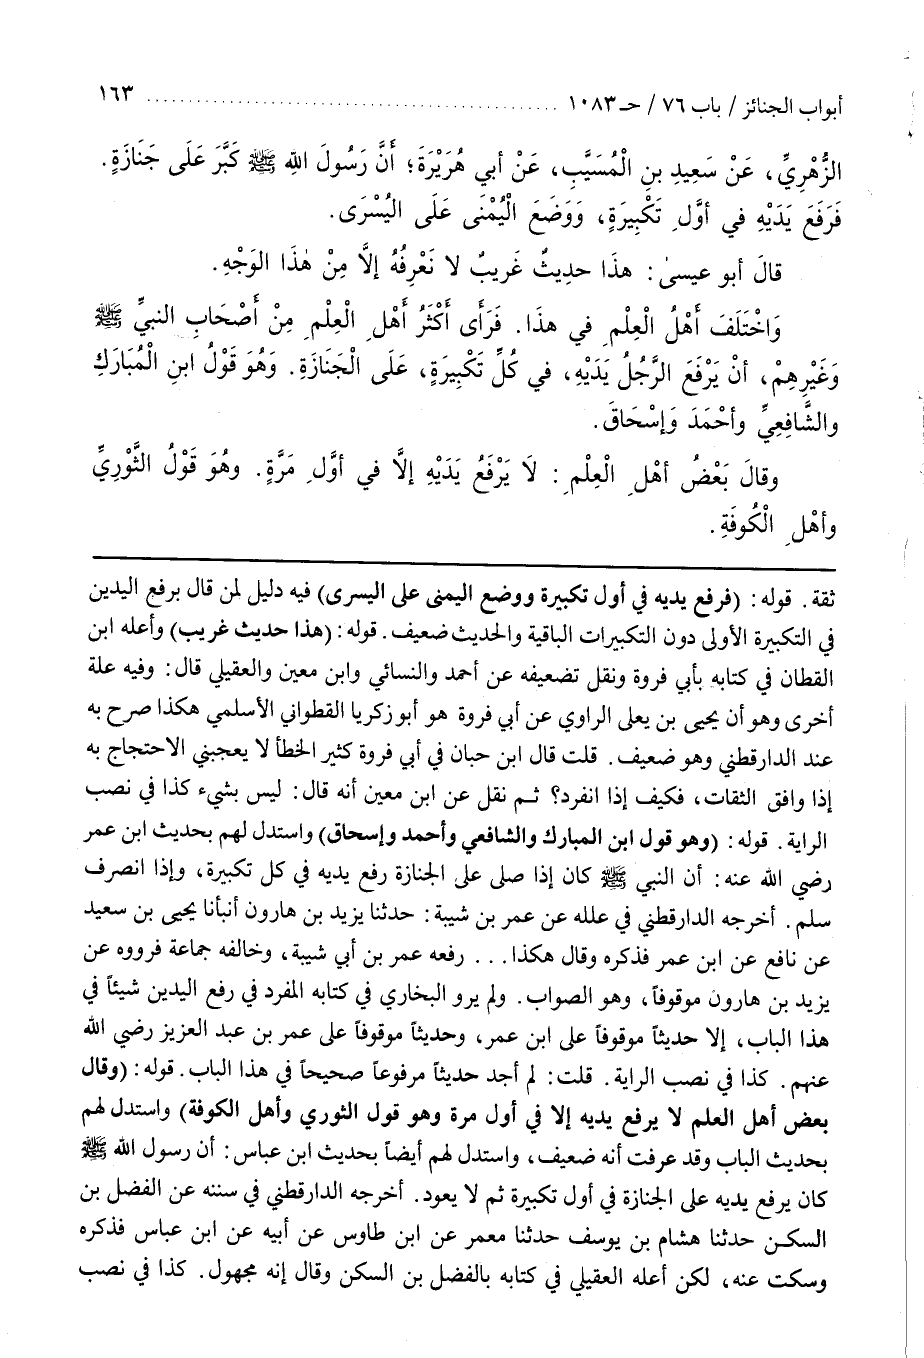 أبواب الجنائز / باب ٧٦ / حـ ١٠٨٣ ............................................................ ١٦٣
الزُّهْرِيِّ، عَنْ سَعِيدِ بنِ الْمُسَيَّبِ، عَنْ أبي هُرَيْرَةَ؛ أَنَّ رَسُولَ اللهِ ﷺ كَبَّرَ عَلَى جَنَازَةٍ.
فَرَفَعَ يَدَيْهِ في أوَّلِ تَكْبِيرَةٍ، وَوَضَعَ الْيُمْنَى عَلَى الْيُسْرَى.
قالَ أبو عيسىٰ: هذَا حديثٌ غَرِيبٌ لا نَعْرِفُهُ إلَّا مِنْ هٰذَا الوَجْهِ.
وَاخْتَلَفَ أَهْلُ الْعِلْمِ في هذَا. فَرَأَى أَكْثَرُ أَهْلِ الْعِلْمِ مِنْ أَصْحَابِ النبيِّ ﷺ
وَغَيْرِهِمْ، أنْ يَرْفَعَ الرَّجُلُ يَدَيْهِ، في كُلِّ تَكْبِيرَةٍ، عَلَى الْجَنَازَةِ. وَهُوَ قَوْلُ ابنِ الْمُبَارَكِ
والشَّافِعِيِّ وأحْمَدَ وَإسْحَاقَ.
وقالَ بَعْضُ أهْلِ الْعِلْمِ: لَا يَرْفَعُ يَدَيْهِ إلَّا في أوَّلِ مَرَّةٍ. وهُوَ قَوْلُ الثَّوْرِيِّ
وأهْلِ الْكُوفَةِ.
ثقة. قوله: (فرفع يديه في أول تكبيرة ووضع اليمنى على اليسرى) فيه دليل لمن قال برفع اليدين
في التكبيرة الأولى دون التكبيرات الباقية والحديث ضعيف. قوله: (هذا حديث غريب) وأعله ابن
القطان في كتابه بأبي فروة ونقل تضعيفه عن أحمد والنسائي وابن معين والعقيلي قال: وفيه علة
أخرى وهو أن يحيى بن يعلى الراوي عن أبي فروة هو أبو زكريا القطواني الأسلمي هكذا صرح به
عند الدارقطني وهو ضعيف. قلت قال ابن حبان في أبي فروة كثير الخطأ لا يعجبني الاحتجاج به
إذا وافق الثقات، فكيف إذا انفرد؟ ثم نقل عن ابن معين أنه قال: ليس بشيء كذا في نصب
الراية. قوله: (وهو قول ابن المبارك والشافعي وأحمد وإسحاق) واستدل لهم بحديث ابن عمر
رضي الله عنه: أن النبي ﷺ كان إذا صلى على الجنازة رفع يديه في كل تكبيرة، وإذا انصرف
سلم. أخرجه الدارقطني في علله عن عمر بن شيبة: حدثنا يزيد بن هارون أنبأنا يحيى بن سعيد
عن نافع عن ابن عمر فذكره وقال هكذا... رفعه عمر بن أبي شيبة، وخالفه جماعة فرووه عن
يزيد بن هارون موقوفاً، وهو الصواب. ولم يرو البخاري في كتابه المفرد في رفع اليدين شيئاً في
هذا الباب، إلا حديثاً موقوفاً على ابن عمر، وحديثاً موقوفاً على عمر بن عبد العزيز رضي الله
عنهم. كذا في نصب الراية. قلت: لم أجد حديثاً مرفوعاً صحيحاً في هذا الباب. قوله: (وقال
بعض أهل العلم لا يرفع يديه إلا في أول مرة وهو قول الثوري وأهل الكوفة) واستدل لهم
بحديث الباب وقد عرفت أنه ضعيف، واستدل لهم أيضاً بحديث ابن عباس: أن رسول الله ﷺ
كان يرفع يديه على الجنازة في أول تكبيرة ثم لا يعود. أخرجه الدارقطني في سننه عن الفضل بن
السكن حدثنا هشام بن يوسف حدثنا معمر عن ابن طاوس عن أبيه عن ابن عباس فذكره
وسكت عنه، لكن أعله العقيلي في كتابه بالفضل بن السكن وقال إنه مجهول. كذا في نصب